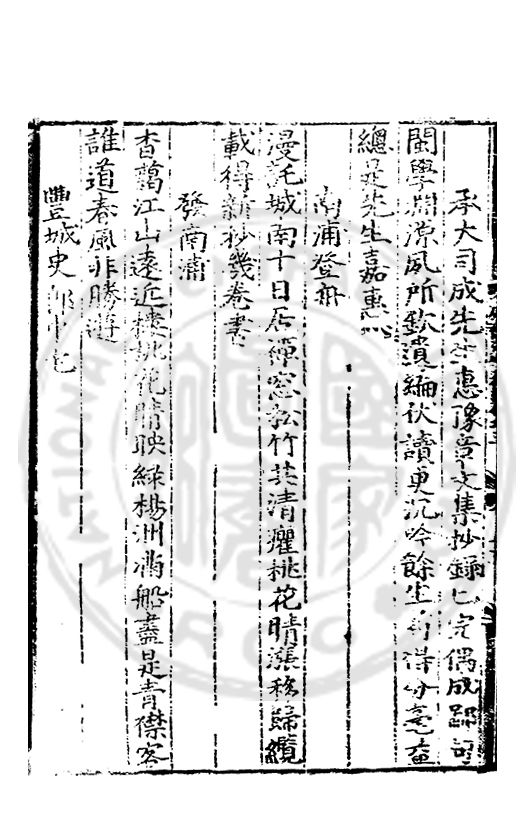 承大司成先生惠豫章文集抄錄已完偶成鄙句
閩學淵源夙所欽遺編伏讀更沉吟餘生所得分毫盡
總是先生嘉惠心
南浦登舟
漫託城南十日居禪窓松竹共清癯桃花晴漲移歸纜
載得新抄幾卷書
發南浦
杳藹江山遠近樓桃花晴映綠楊洲滿船盡是青襟客
誰道春風非勝遊
豐城史郎中宅